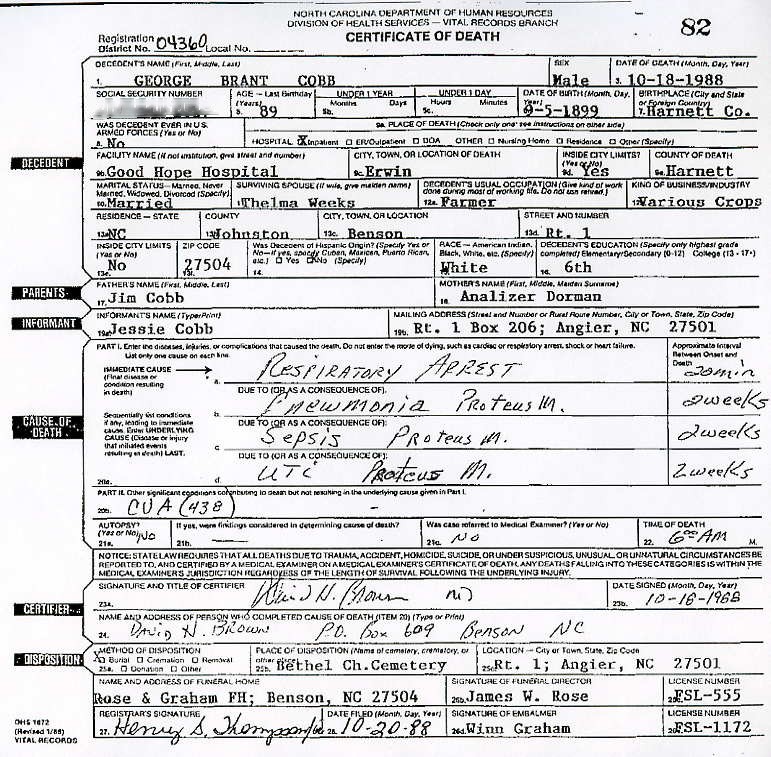 NORTH CAROLINA DEPARTMENT OF HUMAN RESOURCES
DIVISION OF HEALTH SERVICES – VITAL RECORDS BRANCH
CERTIFICATE OF DEATH
82
Registration District No. 04360 Local No.
DECEDENT'S NAME (First, Middle, Last) SEX DATE OF DEATH (Month, Day, Year)
1. GEORGE BRANT COBB Male 3. 10-18-1988
SOCIAL SECURITY NUMBER AGE – Last Birthday (Years) UNDER 1 YEAR UNDER 1 DAY DATE OF BIRTH (Month, Day, BIRTHPLACE (City and State or Foreign Country)
89 5b. Months Days 5c. Hours Minutes -5-1899 7. Harnett Co.
WAS DECEDENT EVER IN U.S. ARMED FORCES (Yes or No) 9a. PLACE OF DEATH (Check only one: see instructions on other side)
8. No HOSPITAL X Inpatient ER/Outpatient DOA OTHER Nursing Home Residence Other (Specify)
DECEDENT
FACILITY NAME (If not institution, give street and number) CITY, TOWN, OR LOCATION OF DEATH INSIDE CITY LIMITS? (Yes or No) COUNTY OF DEATH
9b. Good Hope Hospital 9c. Erwin 9d. Yes 9e. Harnett
MARITAL STATUS – Married, Never Married, Widowed, Divorced (Specify) SURVIVING SPOUSE (If wife, give maiden name) DECEDENT'S USUAL OCCUPATION (Give kind of work done during most of working life. Do not use retired.) KING OF BUSINESS/INDUSTRY
10. Married Thelma Weeks 12a. Farmer Various Crops
RESIDENCE – STATE COUNTY CITY, TOWN, OR LOCATION STREET AND NUMBER
13a. NC Johnston 13c. Benson 13d. Rt. 1
INSIDE CITY LIMITS (Yes or No) ZIP CODE Was Decedent of Hispanic Origin? (Specify Yes or No – If yes, specify Cuban, Mexican, Puerto Rican, etc.) Yes No (Specify) RACE – American Indian, Black, White, etc. (Specify) DECEDENT'S EDUCATION (Specify only highest grade completed) Elementary/Secondary (0-12) College (13 - 17+)
13e. No 13f. 27504 14. White 16. 6th
PARENTS
FATHER'S NAME (First, Middle, Last) MOTHER'S NAME (First, Middle, Maiden Surname)
17. Jim Cobb 18. Analizer Dorman
INFORMANT
INFORMANT'S NAME (Type/Print) MAILING ADDRESS (Street and Number or Rural Route Number, City or Town, State, Zip Code)
19a. Jessie Cobb 19b. Rt. 1 Box 206; Angier, NC 27501
PART I. Enter the diseases, injuries, or complications that caused the death. Do not enter the mode of dying, such as cardiac or respiratory arrest, shock or heart failure. List only one cause on each line.
Approximate Interval Between Onset and Death
IMMEDIATE CAUSE (Final disease or condition resulting in death)
a. RESPIRATORY ARREST 20min
DUE TO (OR AS A CONSEQUENCE OF):
b. Pneumonia Proteus M. 2weeks
CAUSE OF DEATH
Sequentially list conditions if any, leading to immediate cause. Enter UNDERLYING CAUSE (Disease or injury that initiated events resulting in death) LAST.
DUE TO (OR AS A CONSEQUENCE OF):
c. Sepsis Proteus M. 2weeks
DUE TO (OR AS A CONSEQUENCE OF):
20a. d. UTI Proteus M. 2weeks
PART II. Other significant conditions contributing to death but not resulting in the underlying cause given in Part I.
20b. CVA (438)
AUTOPSY? (Yes or No) If yes, were findings considered in determining cause of death? Was case referred to Medical Examiner? (Yes or No) TIME OF DEATH
21a. No 21b. — 21c. No 22. 6:00 AM M.
NOTICE: STATE LAW REQUIRES THAT ALL DEATHS DUE TO TRAUMA, ACCIDENT, HOMICIDE, SUICIDE, OR UNDER SUSPICIOUS, UNUSUAL, OR UNNATURAL CIRCUMSTANCES BE
REPORTED TO, AND CERTIFIED BY A MEDICAL EXAMINER ON A MEDICAL EXAMINER'S CERTIFICATE OF DEATH. ANY DEATHS FALLING INTO THESE CATEGORIES IS WITHIN THE
MEDICAL EXAMINER'S JURISDICTION REGARDLESS OF THE LENGTH OF SURVIVAL FOLLOWING THE UNDERLYING INJURY.
CERTIFIER
SIGNATURE AND TITLE OF CERTIFIER DATE SIGNED (Month, Day, Year)
23a. David H. Brown MD 23b. 10-18-1988
NAME AND ADDRESS OF PERSON WHO COMPLETED CAUSE OF DEATH (ITEM 20) (Type or Print)
24. DAVID H. BROWN P.O. Box 609 Benson NC
DISPOSITION
METHOD OF DISPOSITION PLACE OF DISPOSITION (Name of cemetery, crematory, or other place) LOCATION – City or Town, State, Zip Code
Burial Cremation Removal
25a. Donation Other 25b. Bethel Ch.Cemetery 25c. Rt. 1; Angier, NC 27501
NAME AND ADDRESS OF FUNERAL HOME SIGNATURE OF FUNERAL DIRECTOR LICENSE NUMBER
Rose & Graham FH; Benson, NC 27504 26b. James W. Rose FSL-555
REGISTRAR'S SIGNATURE DATE FILED (Month, Day, Year) SIGNATURE OF EMBALMER LICENSE NUMBER
27. Henry S. Thompson 28. 10-20-88 26d. Winn Graham FSL-1172
DHS 1872
(Revised 1/88)
VITAL RECORDS